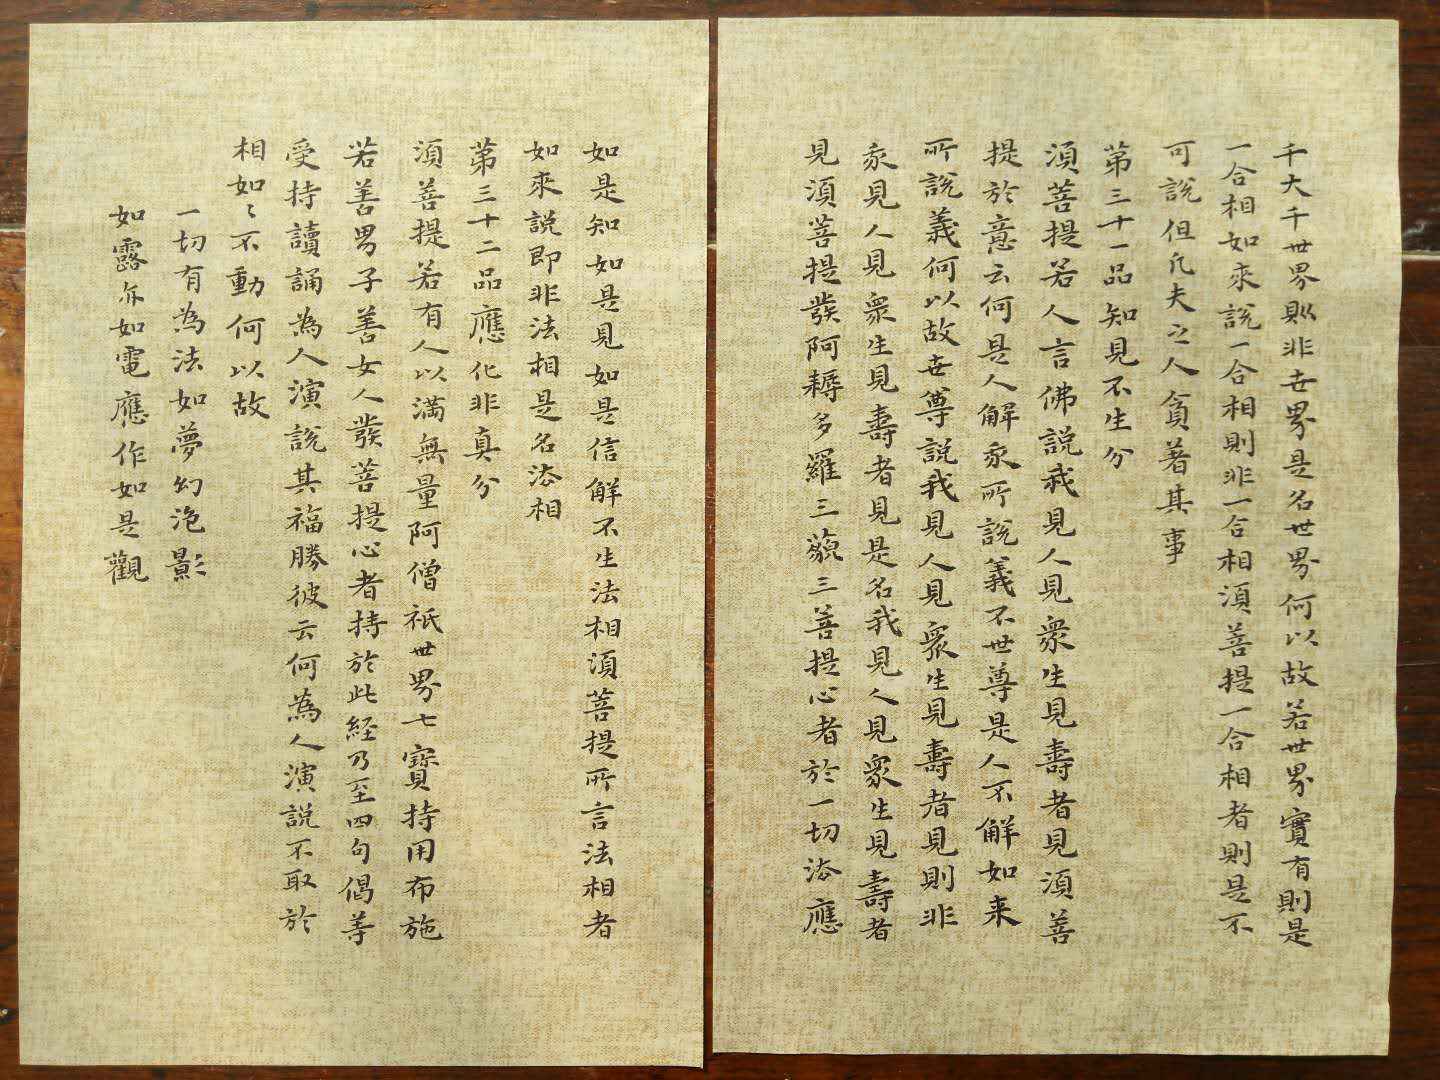 千大千世界則非世界是名世界何以故若世界實有則是
一合相如來說一合相則非一合相須菩提一合相者則是不
可說但凡夫之人貪著其事
第三十一品知見不生分
須菩提若人言佛說我見人見衆生見壽者見須菩
提於意云何是人解我所說義不世尊是人不解如来
所說義何以故世尊說我見人見衆生見壽者見則非
我見人見衆生見壽者見是名我見人見衆生見壽者
見須菩提發阿耨多羅三藐三菩提心者於一切法應
如是知如是見如是信解不生法相須菩提所言法相者
如來說即非法相是名法相
第三十二品應化非真分
須菩提若有人以滿無量阿僧祇世界七寶持用布施
若善男子善女人發菩提心者持於此経乃至四句偈等
受持讀誦為人演說其福勝彼云何為人演說不取於
相如〻不動何以故
一切有為法如夢幻泡影
如露亦如電應作如是觀